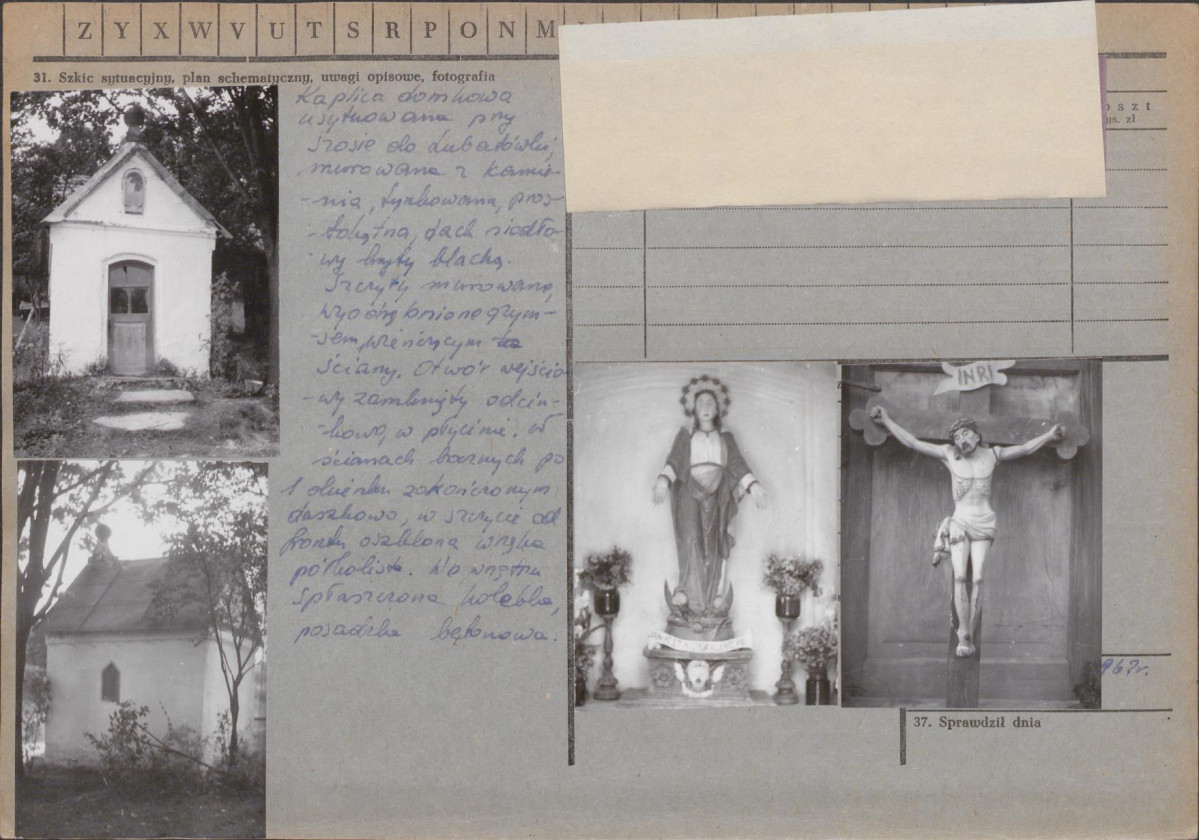 Z Y X W V U T S R P O N M
31. Szkic sytuacyjny, plan schematyczny, uwagi opisowe, fotografia
Kaplica domkowa
usytuowana przy
szosie do Lubatówki,
murowana z kamie-
-nia, tynkowana, pros-
-tokątna, dach siodło-
wy kryty blachą.
Szczyty murowane,
wyodrębnione gzym-
-sem, wieńczącym
ściany. Otwór wejścio
-wy zamknięty odcin-
-kowo, w płycinie. W
ścianach bocznych po
1 okienku zakończonym
daszkowo, w szczycie od
frontu oszklona wnęka
półkolista. Wewnątrz
spłaszczona kolebka,
posadzka betonowa.
oszt
ys. zł
INRI
967r.
37. Sprawdził dnia